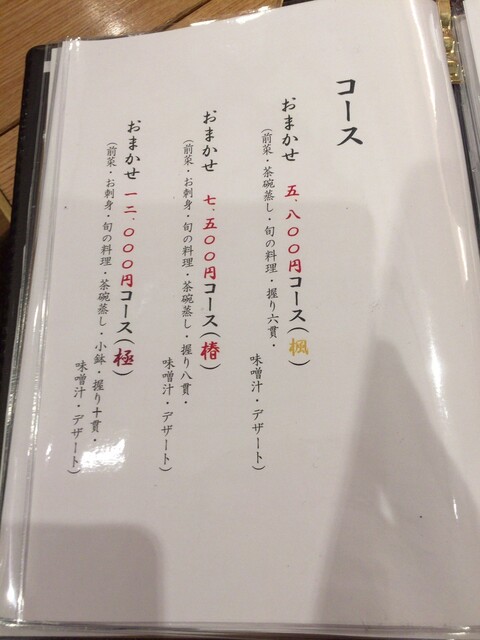 コース
おまかせ 五、八〇〇円コース(楓)
(前菜・茶碗蒸し・旬の料理・握り六貫・
味噌汁・デザート)
おまかせ 七、五〇〇円コース(椿)
(前菜・お刺身・旬の料理・茶碗蒸し・握り八貫・
味噌汁・デザート)
おまかせ 一二、〇〇〇円コース(極)
(前菜・お刺身・旬の料理・茶碗蒸し・小鉢・握り十貫・
味噌汁・デザート)